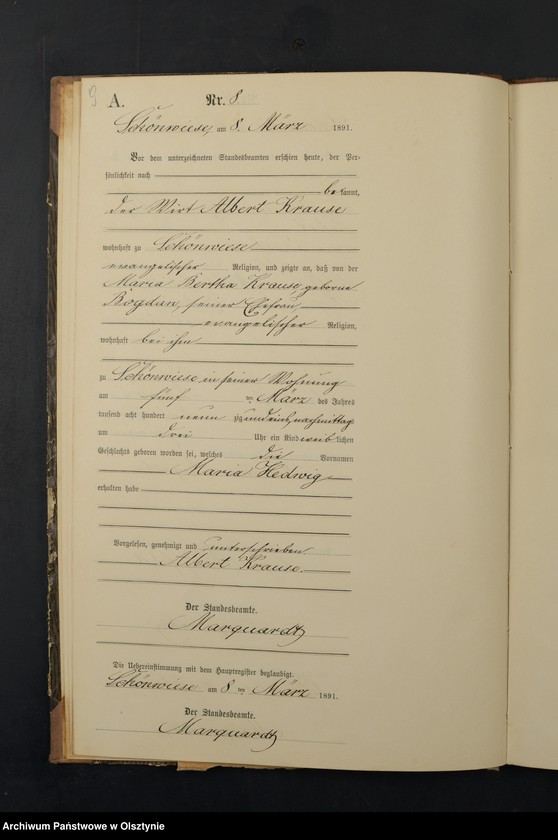 9
A. Nr. 8
Schönwiese, am 8. März 1891.
Vor dem unterzeichneten Standesbeamten erschien heute, der Per-
sönlichkeit nach
be kannt,
der Wirt Albert Krause
wohnhaft zu Schönwiese
evangelischer Religion, und zeigte an, daß von der
Maria Bertha Krause, geborne
Bogdan, seiner Ehefrau,
evangelischer Religion,
wohnhaft bei ihm
zu Schönwiese in seiner Wohnung
am fünf ten März des Jahres
tausend acht hundert neunzig und eins, nachmittag
um drei Uhr ein Kind weib lichen
Geschlechts geboren worden sei, welches die Vornamen
Maria Hedwig
erhalten habe
Vorgelesen, genehmigt und unterschrieben
Albert Krause.
Der Standesbeamte.
Marquardt
Die Uebereinstimmung mit dem Hauptregister beglaubigt.
Schönwiese am 8 ten März 1891.
Der Standesbeamte.
Marquardt
Archiwum Państwowe w Olsztynie